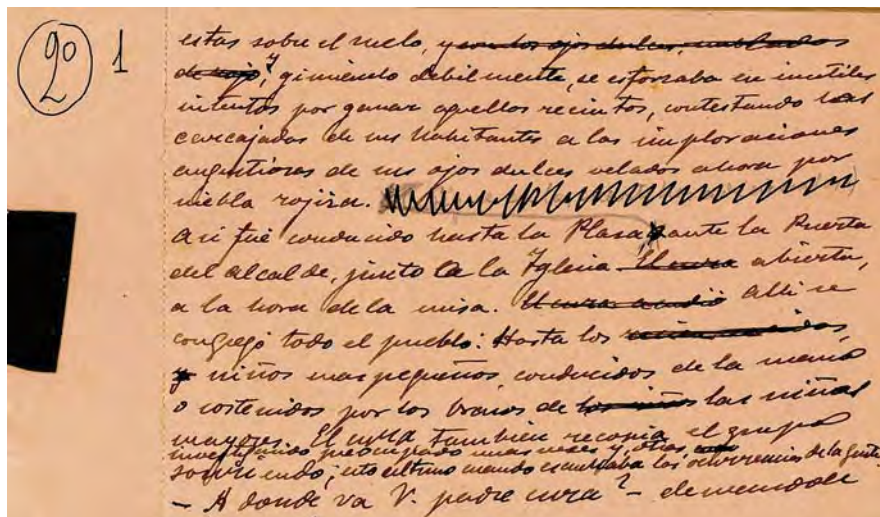 2º 1
estas sobre el suelo, y con los ojos dulces, nublados
de rojo, y gimiendo debilmente, se esforzaba en inutiles
intentos por ganar aquellos recintos, contestando las
carcajadas de sus habitantes a las imploraciones
angustiosas de sus ojos dulces velados ahora por
niebla rojiza.
Asi fué conducido hasta la Plaza, ante la Puerta
del alcalde, junto a la Iglesia El cura abierta,
a la hora de la misa. El cura acudió alli se
congregó todo el pueblo: Hasta los recien nacidos,
y niños mas pequeños, conducidos de la mano
o sostenidos por los brazos de los niños las niñas
mayores. El cura tambien recorria el grupo
investigando preocupado unas veces y, otras,
sonriendo; esto ultimo cuando escuchaba las ocurrencias de la gente.
— A donde va V. padre cura? —